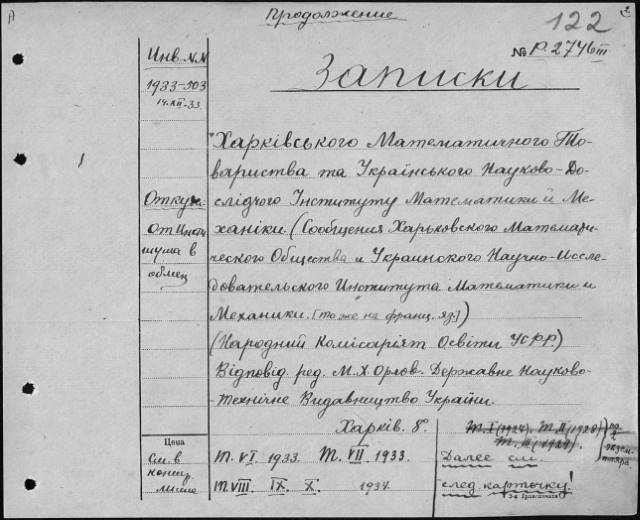 Продолжение
122
№ Р. 2746 III
Инв. №№
1933-503
14.XII-33.
Записки
Харківського Математичного То-
вариства та Українського Науково-До-
слідчого Інституту Математики й Ме-
ханіки. (Сообщения Харьковского Математи-
ческого Общества и Украинского Научно-Иссле-
довательского Института Математики и
Механики. [то же на франц. яз.])
(Народний Комісаріят Освіти УСРР)
Відповід. ред. М. Х. Орлов. Державне Науково-
Технічне Видавництво України.
Харків. 8°.
Отку
От Инсти
тута в
обмен
Цена
См. в
конце
Т. VI 1933. Т. VII 1933.
Т. VIII IX X 1934.
Т. I (1927). Т. II (1928)
Т. III (1929).
по
2
экзем-
пляра
Далее см.
след. карточку!